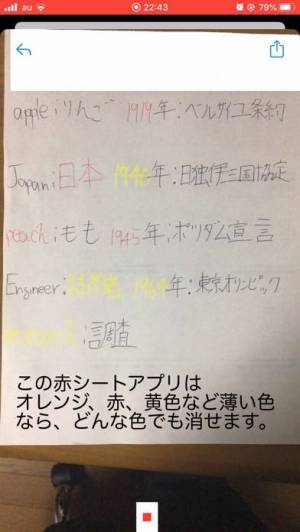 au 22:43 79%
apple:りんご 1919年:ベルサイユ条約
Japan:日本 1940年:日独伊三国協定
peach:もも 1945年:ポツダム宣言
Engineer: 1964年:東京オリンピック
:調査
この赤シートアプリは
オレンジ、赤、黄色など薄い色
なら、どんな色でも消せます。